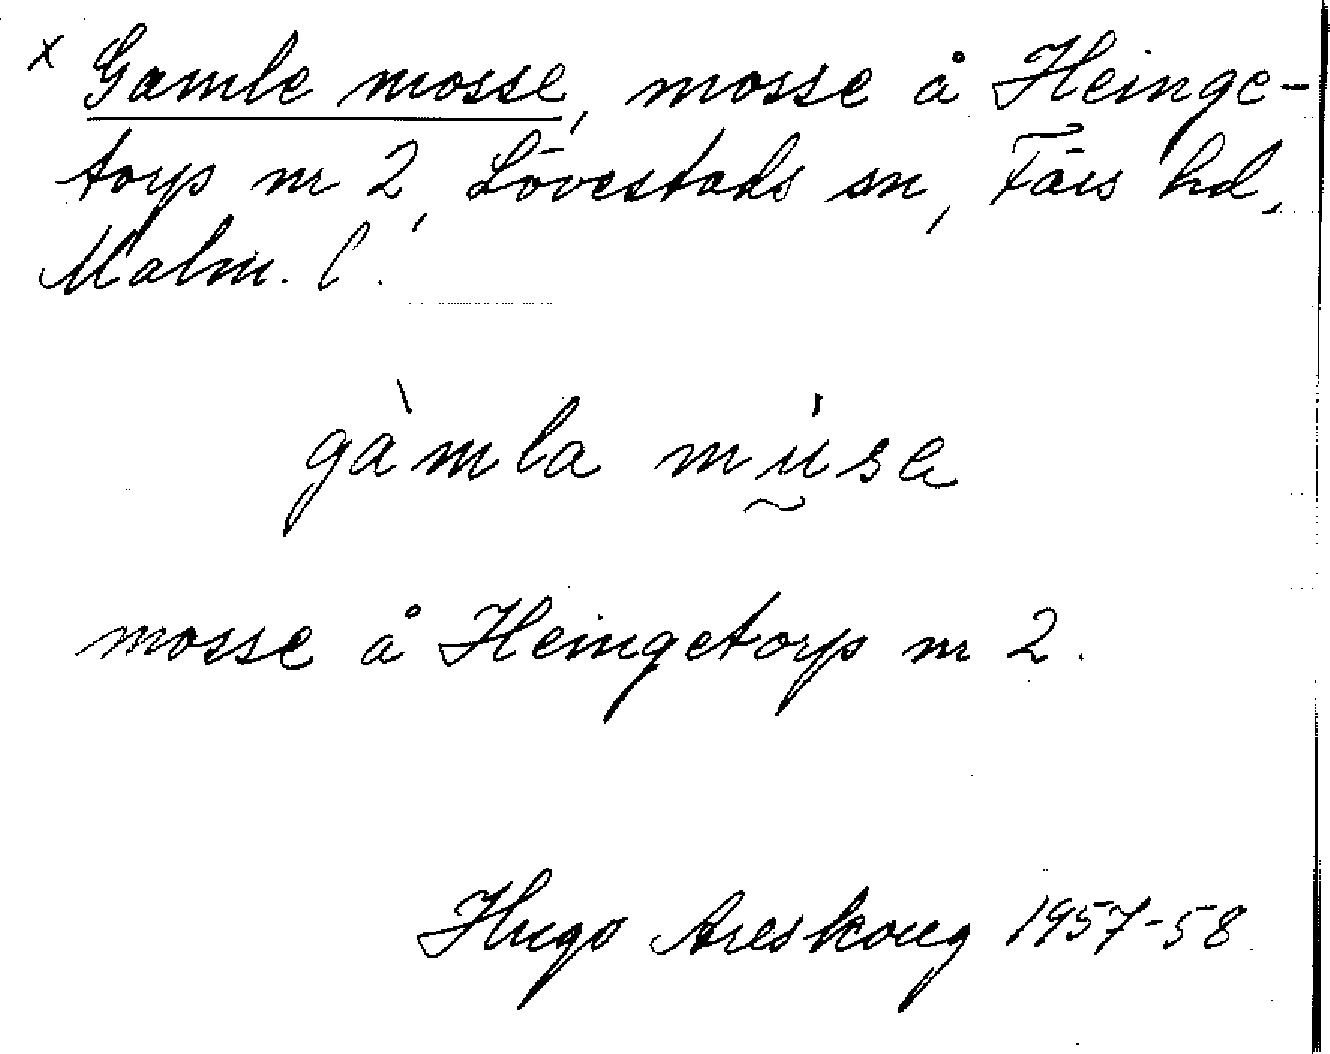 x Gamle mosse, mosse å Heinge-
torp nr 2, Lövestads sn, Färs hd,
Malm. l.
gàmla mùsa
mosse å Heingetorp nr 2.
Hugo Areskoug 1957-58